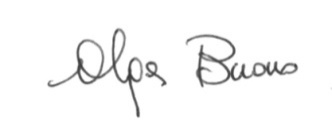 Olga Buono